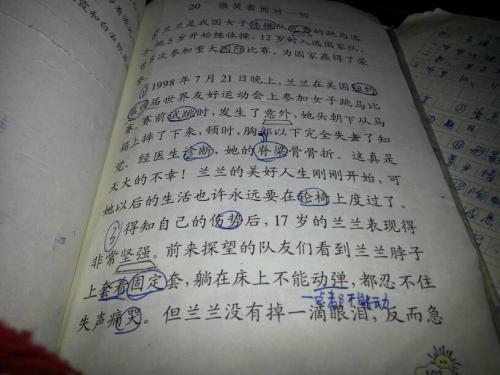 20 微笑着面对一切
兰兰是我国女子体操队优秀的跳马选
手。她5岁开始练体操,12岁时入选国家队,
多次参加重大国际比赛,为国家赢得了荣
誉。
②1998年7月21日晚上,兰兰在美国纽约
第四届世界友好运动会上参加女子跳马比
赛。赛前试跳时,发生了意外,她头朝下从马
箱上摔了下来,顿时,胸部以下完全失去了知
觉。经医生诊断,她的脊梁骨骨折。这真是
天大的不幸!兰兰的美好人生刚刚开始,可
她以后的生活也许永远要在轮椅上度过了。
③得知自己的伤势后,17岁的兰兰表现得
非常坚强。前来探望的队友们看到兰兰脖子
上套着固定套,躺在床上不能动弹,都忍不住
都不能动
失声痛哭。但兰兰没有掉一滴眼泪,反而急